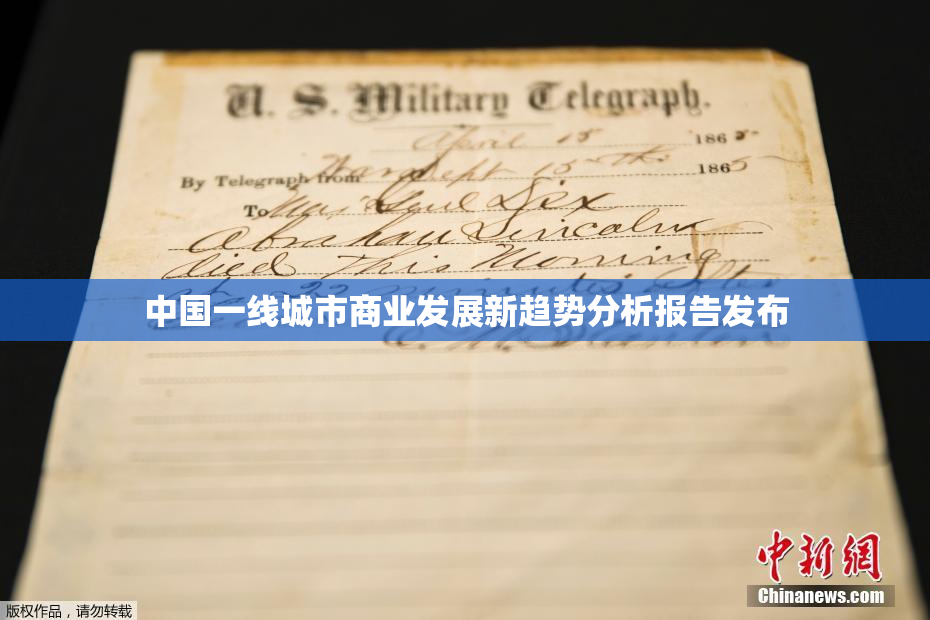 U. S. Military Telegraph.
April 15 1865
By Telegraph from War Dept 15th 1865
To Maj Genl Dix
Abraham Lincoln
died This Morning
at 22 minutes after
中国一线城市商业发展新趋势分析报告发布
E. M. Stanton
中新網
Chinanews.com
版权作品,请勿转载